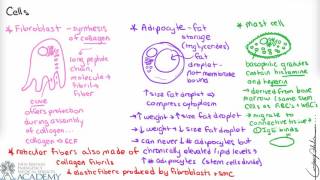 Cells
* Fibroblast - synthesis
of collagen
↳ long peptide
chain,
molecule →
fibril →
fiber
cove
offers protection
during assembly
of collagen
collagen → ECF
* reticular fibers also made of
collagen fibrils
* elastic fibers produced by fibroblasts + SMC
* Adipocyte - fat
storage
(triglycerides)
fat
droplet -
not membrane
bound
↑ size fat droplet →
cytoplasm
compression
↑ weight → ↑ size fat droplet
↓ weight → ↓ size fat droplet
→ can never ↓ # adipocytes but
chronically elevated lipid levels ↑
# adipocytes (stem cells divide)
* mast cell
basophilic granules
contain histamine
and heparin
→ derived from bone
marrow (same stem
cells as RBCs + WBCs)
→ migrate to
connective tissue
→ IgE binds
ACADEMY